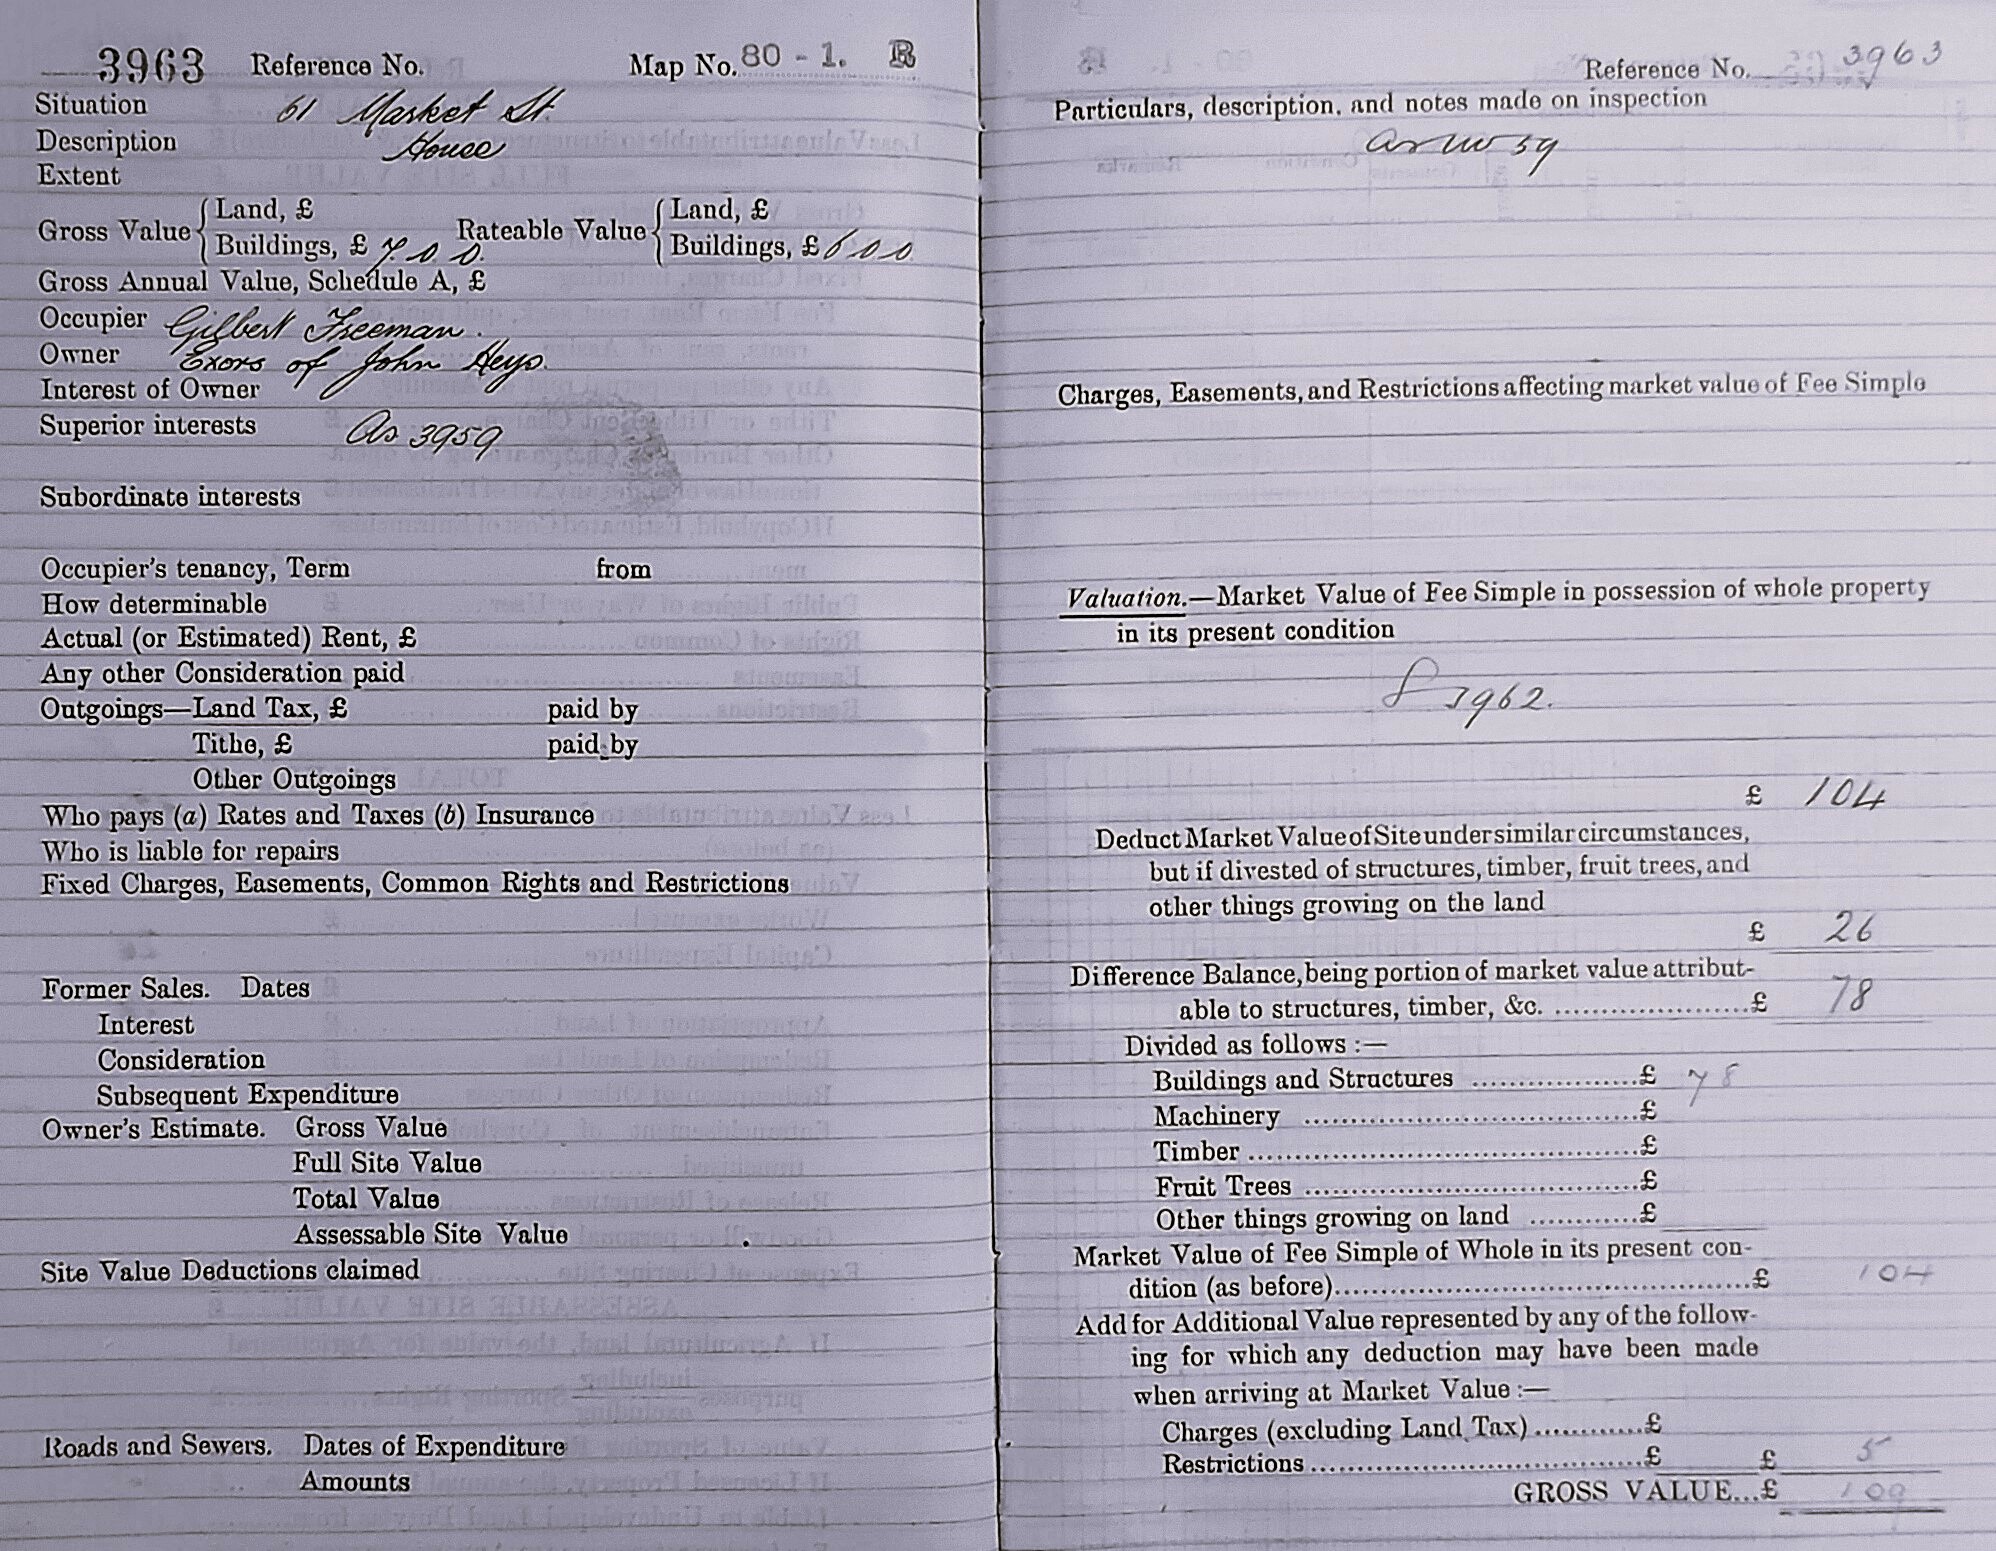 3963 Reference No. Map No. 80 - 1. R
Situation 61 Market St.
Description House
Extent
Gross Value { Land, £ Rateable Value { Land, £
Buildings, £ 7. 0. 0. Buildings, £ 6 0 0
Gross Annual Value, Schedule A, £
Occupier Gilbert Freeman.
Owner Exors of John Heys.
Interest of Owner
Superior interests As 3959
Subordinate interests
Occupier's tenancy, Term from
How determinable
Actual (or Estimated) Rent, £
Any other Consideration paid
Outgoings—Land Tax, £ paid by
Tithe, £ paid by
Other Outgoings
Who pays (a) Rates and Taxes (b) Insurance
Who is liable for repairs
Fixed Charges, Easements, Common Rights and Restrictions
Former Sales. Dates
Interest
Consideration
Subsequent Expenditure
Owner's Estimate. Gross Value
Full Site Value
Total Value
Assessable Site Value
Site Value Deductions claimed
Roads and Sewers. Dates of Expenditure
Amounts
Reference No. 3963
Particulars, description, and notes made on inspection
as 59
Charges, Easements, and Restrictions affecting market value of Fee Simple
Valuation.—Market Value of Fee Simple in possession of whole property
in its present condition
3962.
£ 104
Deduct Market Value of Site under similar circumstances,
but if divested of structures, timber, fruit trees, and
other things growing on the land
£ 26
Difference Balance, being portion of market value attribut-
able to structures, timber, &c. ........................£ 78
Divided as follows :—
Buildings and Structures ....................£ 78
Machinery ........................................£
Timber ...............................................£
Fruit Trees ........................................£
Other things growing on land ............£
Market Value of Fee Simple of Whole in its present con-
dition (as before)....................................................£ 104
Add for Additional Value represented by any of the follow-
ing for which any deduction may have been made
when arriving at Market Value :—
Charges (excluding Land Tax) .............£
Restrictions..........................................£ £ 5
GROSS VALUE...£ 109